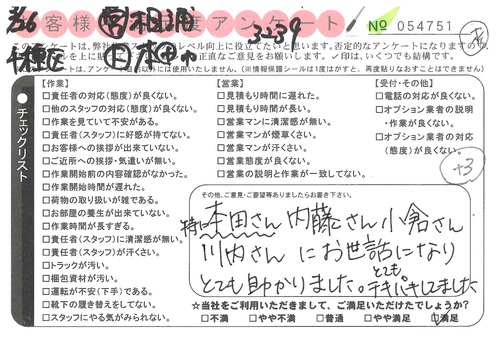 8/26 お客様満足度アンケート 3-239 № 054751
このアンケートは、弊社サービスのレベル向上に役立てたいと思います。否定的なアンケートになりますので
正直なご意見をお願いします。✓印は、いくつでも結構です。
アンケートは、アンケート目的以外には使用いたしません。(※情報保護シールは1度はがすと、再度貼りなおすことはできません)
チェックリスト
【作業】
□責任者の対応(態度)が良くない。
□他のスタッフの対応(態度)が良くない。
□作業を見ていて不安がある。
□責任者(スタッフ)に好感が持てない。
□お客様への挨拶が出来ていない。
□ご近所への挨拶・気遣いが無い。
□作業開始前の内容確認がなかった。
□作業開始時間が遅れた。
□荷物の取り扱いが雑である。
□お部屋の養生が出来ていない。
□作業時間が長すぎる。
□責任者(スタッフ)に清潔感が無い。
□責任者(スタッフ)が汗くさい。
□トラックが汚い。
□梱包資材が汚い。
□運転が不安(下手)である。
□靴下の履き替えをしてない。
□スタッフにやる気がみられない。
【営業】
□見積もり時間に遅れた。
□見積もり時間が長い。
□営業マンに清潔感が無い。
□営業マンが煙草くさい。
□営業マンが汗くさい。
□営業態度が良くない。
□営業の説明と作業が一致してない。
【受付・その他】
□電話の対応が良くない。
□オプション業者の説明
・作業が良くない。
□オプション業者の対応
(態度)が良くない。
+3
その他、ご意見・ご要望等ありましたらお書き下さい。
特に本田さん 内藤さん 小倉さん
川内さん にお世話になり
とても助かりました。とても
テキパキしてました
☆当社をご利用いただきまして、ご満足いただけたでしょうか?
□不満 □やや不満 □普通 □やや満足 ☑満足